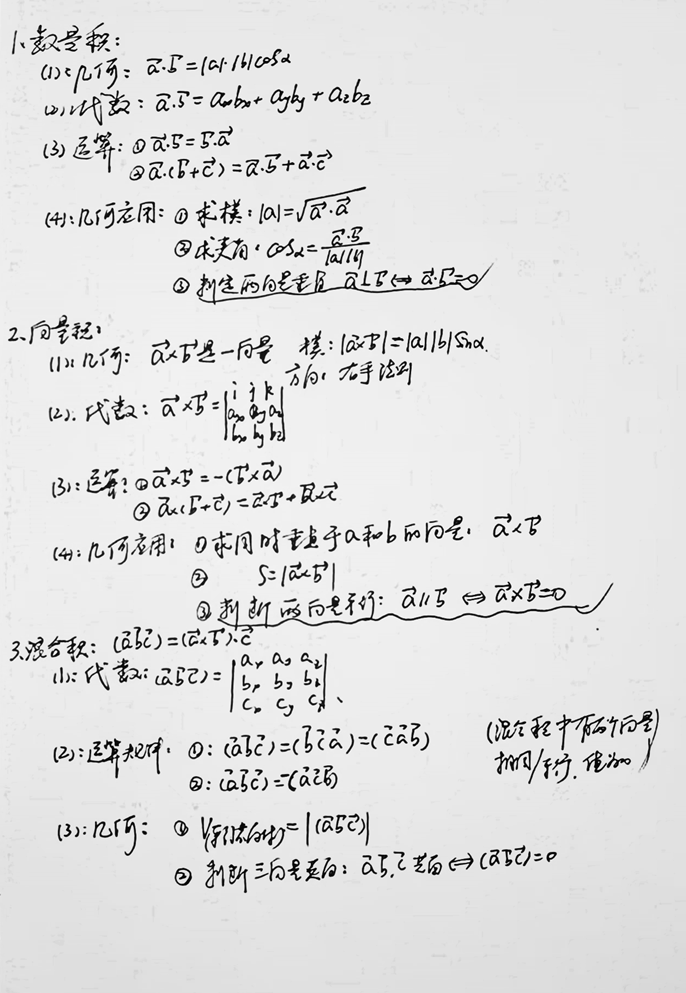 1、数量积：
(1):几何：a⃗·b⃗=|a|·|b|cosα
(2):代数：a⃗·b⃗=axbx+ayby+azbz
(3)运算：①a⃗·b⃗=b⃗·a⃗
②a⃗·(b⃗+c⃗)=a⃗·b⃗+a⃗·c⃗
(4):几何应用：①求模：|a|=√(a⃗·a⃗)
②求夹角：cosα=a⃗·b⃗/|a||b|
③判定两向量垂直 a⃗⊥b⃗⇔a⃗·b⃗=0
2、向量积：
(1):几何：a⃗×b⃗是一向量 模：|a⃗×b⃗|=|a||b|sinα.
方向：右手法则
(2):代数：a⃗×b⃗=|i j k
ax ay az
bx by bz|
(3):运算：①a⃗×b⃗=-(b⃗×a⃗)
②a⃗×(b⃗+c⃗)=a⃗×b⃗+a⃗×c⃗
(4):几何应用：①求同时垂直于a和b的向量：a⃗×b⃗
② S=|a⃗×b⃗|
③判断两向量平行：a⃗∥b⃗⇔a⃗×b⃗=0
3.混合积：(a⃗b⃗c⃗)=(a⃗×b⃗)·c⃗
(1):代数：(a⃗b⃗c⃗)=|ax ay az
bx by bz
cx cy cz|、
(2):运算规律：①：(a⃗b⃗c⃗)=(b⃗c⃗a⃗)=(c⃗a⃗b⃗)
②：(a⃗b⃗c⃗)=-(a⃗c⃗b⃗)
(混合积中有两个向量
相同/平行，值为0)
(3):几何：①V平行六面体=|(a⃗b⃗c⃗)|
②判断三向量共面：a⃗,b⃗,c⃗共面⇔(a⃗b⃗c⃗)=0